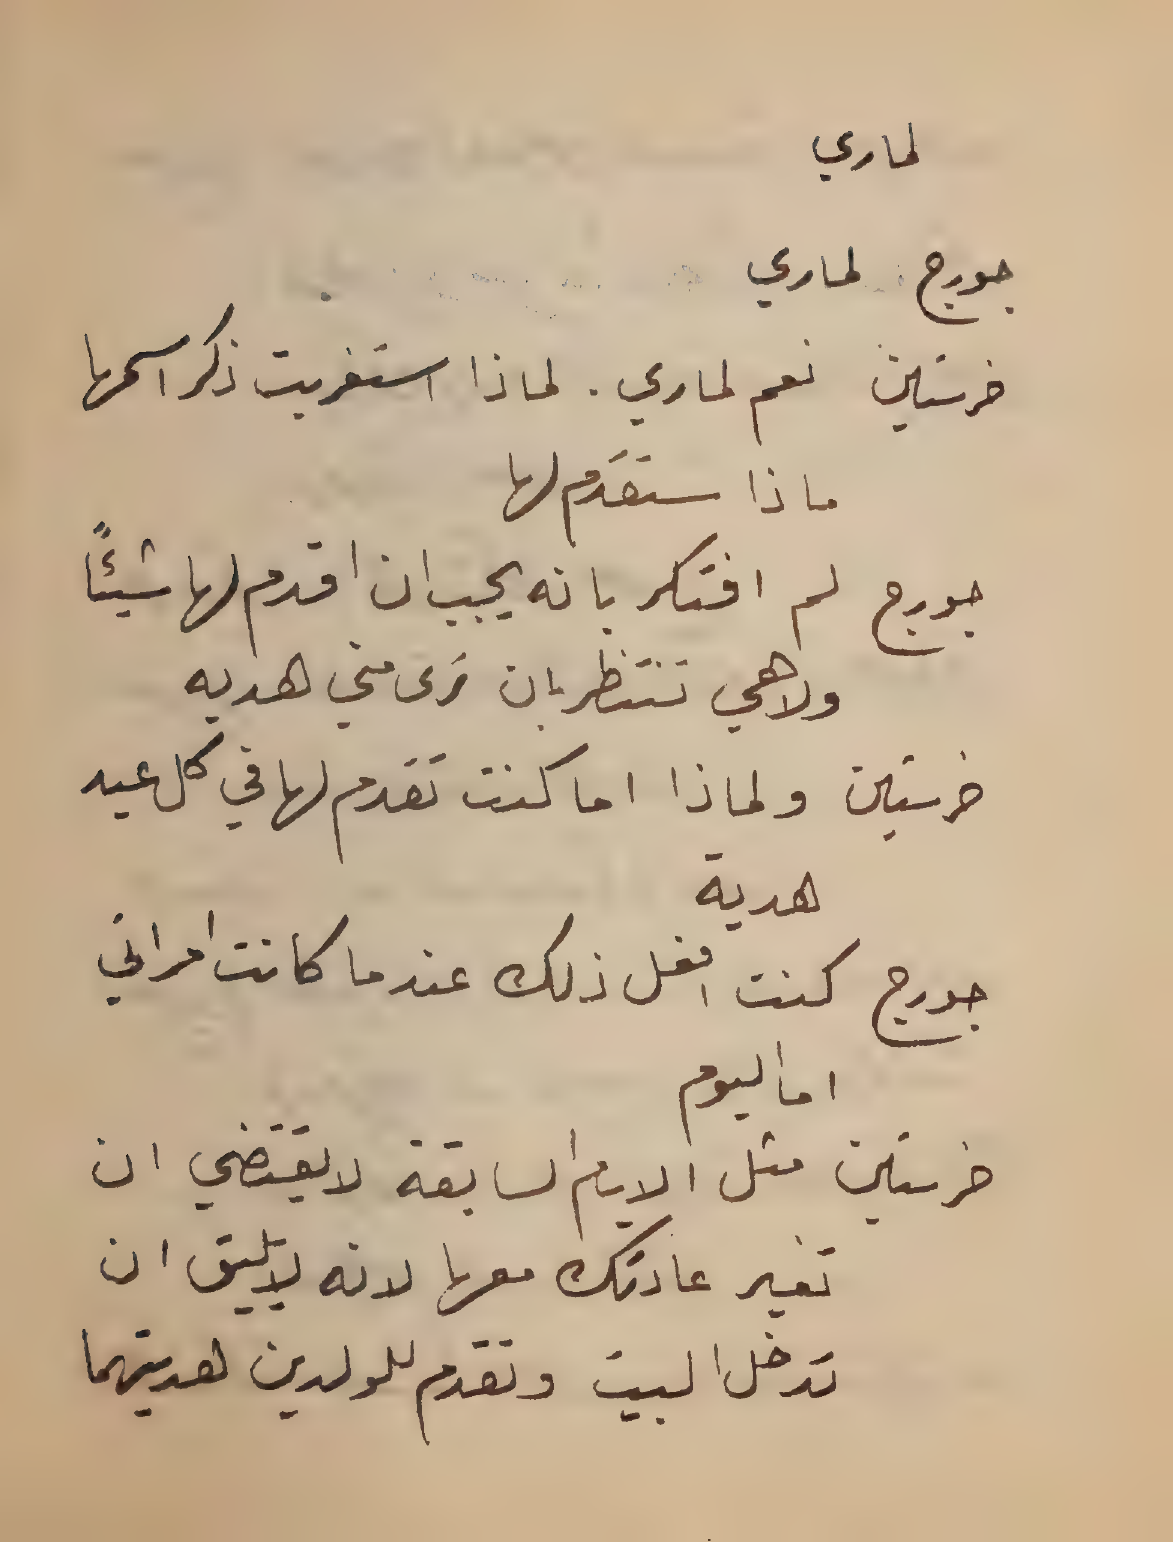 لماري
جورج . لماري
خرستين نعم لماري . لماذا استغربت ذكر اسمها
ماذا ستقدم لها
جورج لم افتكر بانه يجب ان اقدم لها شيئًا
ولا هي تنتظر بان ترى مني هديه
خرستين ولماذا اما كنت تقدم لها في كل عيد
هدية
جورج كنت افعل ذلك عندما كانت امراتي
اما اليوم
خرستين مثل الايام السابقة لا يقتضي ان
تغير عادتك معها لانه لا يليق ان
تدخل البيت وتقدم للولدين هديتهما